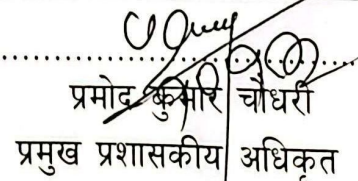 प्रमोद कुमार चौधरी
प्रमुख प्रशासकीय अधिकृत